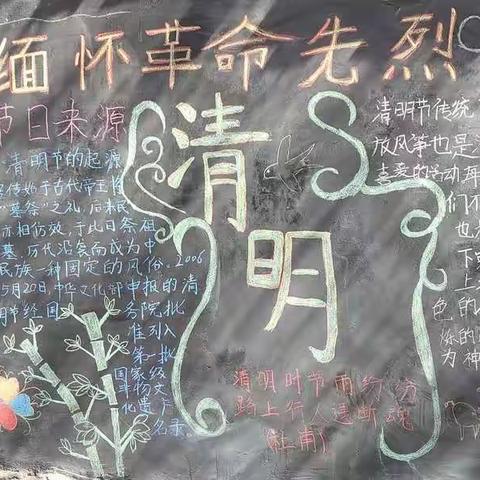 缅怀革命先烈
节日来源
清明节的起源
传始于古代帝王将
“墓祭”之礼,后来民
亦相仿效,于此日祭祖
墓,历代沿袭而成为中
民族一种固定的风俗。2006
5月20日,中华文化部申报的清
明节经国务院批
准列入
第一批
国家级
非物文
化遗产
名录。
清明
清明时节雨纷纷
路上行人断魂
(杜甫)
清明节传统
放风筝也是
喜爱的活动,每
们不
也
下
上
色的
烁的
为神